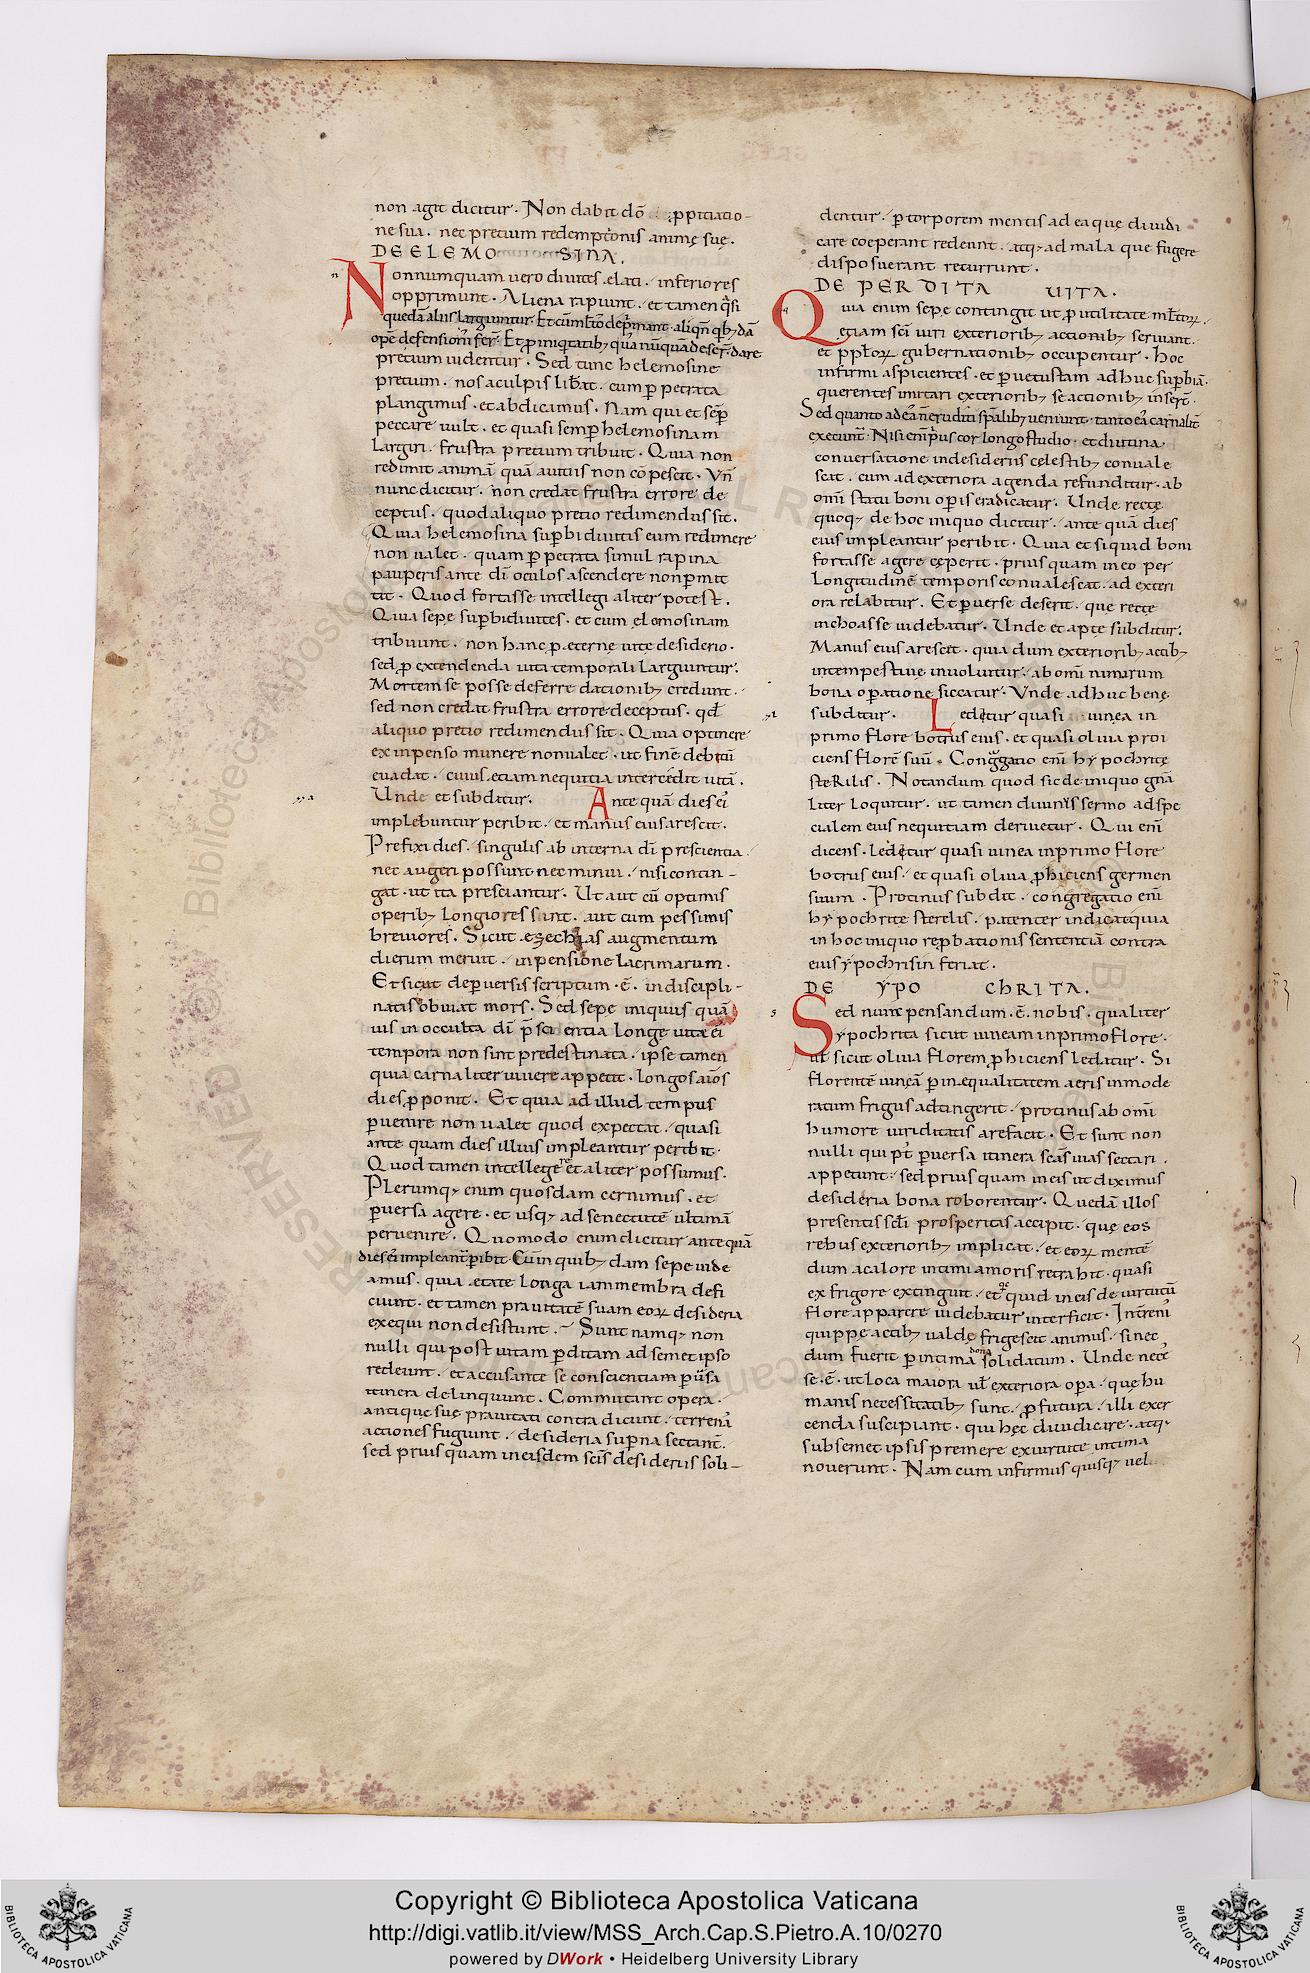 non agit dicitur. Non dabit dō ppitiatio-
ne sua. nec pretium redemptionis animę suę.
DE ELEMO SINA.
Nonnumquam vero diuites elati. inferiores
opprimunt. Aliena rapiunt. et tamen q̄si
quedā aliis larguuntur. Et cū
opē defensionis
pretium uidentur. Sed tunc helemosine
pretium. nos a culpis libat. cum ppetrata
plangimus. et abdicamus. Nam qui et semp
peccare uult. et quasi semp helemosinam
largiri. frustra pretium tribuit. Quia non
redimit animā quā auitiis non cōpescit. Vn̄
nunc dicitur. non credat frustra errore de
ceptus. quod aliquo pretio redimendus sit.
Quia helemosina supbi diuitis eum redimere
non ualet. quam ppetrata simul rapina
pauperis ante dī oculos ascendere non pmit
tit. Quod fortasse intellegi aliter potest.
Quia sepe supbi diuites. et cum elemosinam
tribuunt. non hanc p eterne uite desiderio.
sed p extendenda uita temporali larguuntur.
Mortem se posse deferre dationib; credunt.
sed non credat frustra errore deceptus. qd
aliquo pretio redimendus sit. Quia optinere
ex inpenso munere non ualet. ut finē debitū
euadat. cuius etiam nequitia intercedit uitā.
Unde et subditur. Ante quā dies ei
implebuntur peribit. et manus eius arescit.
Prefixi dies. singulis ab interna dī prescientia.
nec augeri possunt nec minui. nisi contin-
gat. ut ita presciantur. Ut aut cū optimis
operib; longiores sint. aut cum pessimis
breuiores. Sicut ezechias augmentum
dierum meruit. inpensione lacrimarum.
Et sicut de puersis scriptum. ē. indiscipli-
natis obuiat mors. Sed sepe iniquus quā
uis in occulta dī pscientia longę uitę ei
tempora non sint predestinata. ipse tamen
quia carnaliter uiuere appetit. longos aīos
dies pponit. Et quia ad illud tempus
puenire non ualet quod expectat. quasi
ante quam dies illius impleantur peribit.
Quod tamen intellegere et aliter possumus.
Plerumq; enim quosdam cernimus. et
puersa agere. et usq; ad senectutē ultimā
peruenire. Quomodo enim dicitur ante quā
dies ei impleant pibit. Cum quib;dam sepe uide
amus. quia etate longa iam membra defi
ciunt. et tamen prauitatē suam eoꝝ desideria
exequi non desistunt. Sunt namq; non
nulli qui post uitam pditam ad semet ipso
redeunt. et accusante se conscientiam puersa
itinera delinquunt. Commutant opera.
antique suę prauitati contra dicunt. terrenā
actiones fugiunt. desideria supna sectant.
sed prius quam in eisdem scīs desideriis soli-
dentur. p torporem mentis ad ea quę diiudi
care coeperant redeunt. atq; ad mala que fugere
disposuerant recurrunt.
DE PERDITA UITA.
Quia enim sepe contingit ut p utilitate mltoꝝ.
etiam scī uiri exteriorib; actionib; seruiant.
et pploꝝ gubernationib; occupentur. Hoc
infirmi aspicientes. et p uetustam adhuc supbiā.
querentes imitari exteriorib; se actionib; insert.
Sed quanto ad ea n̄ eruditi spalib; ueniunt. tanto ea carnalit
execunt. Nisi enī prius cor longo studio. et diutina
conuersatione in desideriis celestib; conuale
scat. cum ad exteriora agenda refunditur. ab
omī statu boni opis eradicatur. Unde recte
quoq; de hoc iniquo dicitur. ante quā dies
eius impleantur peribit. Quia et si quid boni
fortasse agere ceperit. prius quam in eo per
longitudinē temporis conualescat. ad exteri
ora relabitur. Et puerse deserit. que recte
inchoasse uidebatur. Unde et apte subditur.
Manus eius arescet. quia dum exteriorib; actib;
intempestiue inuoluitur. ab omī nimirum
bona opatione siccatur. Unde adhuc bene
subditur. Ledetur quasi uinea in
primo flore botrus eius. et quasi oliua proi
ciens florē suū. Congregatio enī hypochritę
steRilis. Notandum quod sic de iniquo gnā
liter loquitur. ut tamen diuinis sermo ad spe
cialem eius nequitiam deriuetur. Qui enī
dicens. ledetur quasi uinea in primo flore
botrus eius. et quasi oliua phiciens germen
suum. Protinus subdit. congregatio enī
hypochritę sterelis. patenter indicat quia
in hoc iniquo repbationis sententiā contra
eius ypochrisin feriat.
DE YPO CHRITA.
Sed nunc pensandum. ē. nobis. qualiter
ypochrita sicut uineam in primo flore.
ut sicut oliua florem phiciens leditur. Si
florentē uineā p inequalitatem aeris inmode
ratum frigus adtingerit. protinus ab omī
humore uiriditatis arefacit. Et sunt non
nulli qui pt puersa itinera scās uias sectari.
appetunt. sed prius quam in eis ut diximus
desideria bona roborentur. Quedā illos
presentis scli prosperitas accipit. quę eos
rebus exteriorib; implicat. et eoꝝ mentē
dum a calore intimi amoris retrahit. quasi
ex frigore extinguit. et quid in eis de uirtutū
flore apparere uidebatur interficit. In terreni
quippe actib; ualde frigescit animus. si nec
dum fuerit p intima dona solidatum. Unde nece
se. ē. ut loca maiora ul exteriora opa. quę hu
manis necessitatib; sunt. pfutura. illi exer
cenda suscipiant. qui hęc diiudicare. atq;
subsemet ipsis premere ex uirtute intima
nouerunt. Nam cum infirmus quisq; uel
Copyright © Biblioteca Apostolica Vaticana
http://digi.vatlib.it/view/MSS_Arch.Cap.S.Pietro.A.10/0270
powered by DWork • Heidelberg University Library
BIBLIOTECA APOSTOLICA VATICANA
BIBLIOTECA APOSTOLICA VATICANA